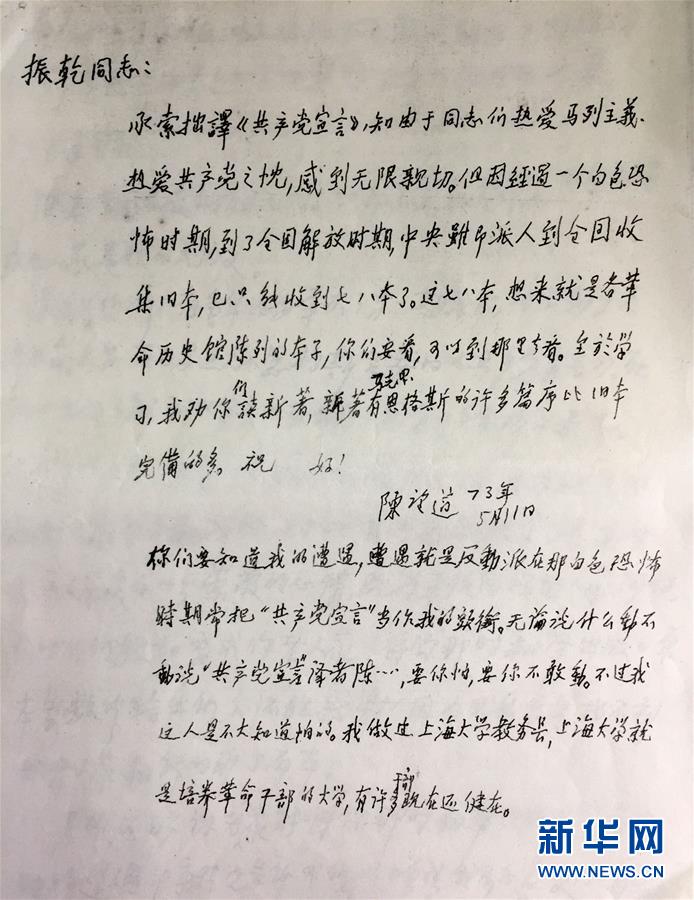 振乾同志：
承索拙譯《共产党宣言》，知由于同志们热爱马列主義、
热爱共产党之忱，感到无限親切。但因經過一个白色恐
怖时期，到了全国解放时期，中央雖即派人到全国收
集旧本，已只能收到七八本了。这七八本，想来就是各革
命历史馆陈列的本子，你们要看，可以到那里去看。至於学
习，我劝你们讀新著，新著有马克思、恩格斯的许多篇序比旧本
完備的多。祝 好！
陳望道 73年
5月11日
你们要知道我的遭遇，遭遇就是反動派在那白色恐怖
時期常把“共产党宣言”当作我的頭銜。无論说什么動不
動说“共产党宣言”译者陈……，要你怕，要你不敢動。不过我
这人是不大知道怕的。我做过上海大学教务長，上海大学就
是培养革命干部的大学，有许多干部现在还健在。
新华网
WWW.NEWS.CN